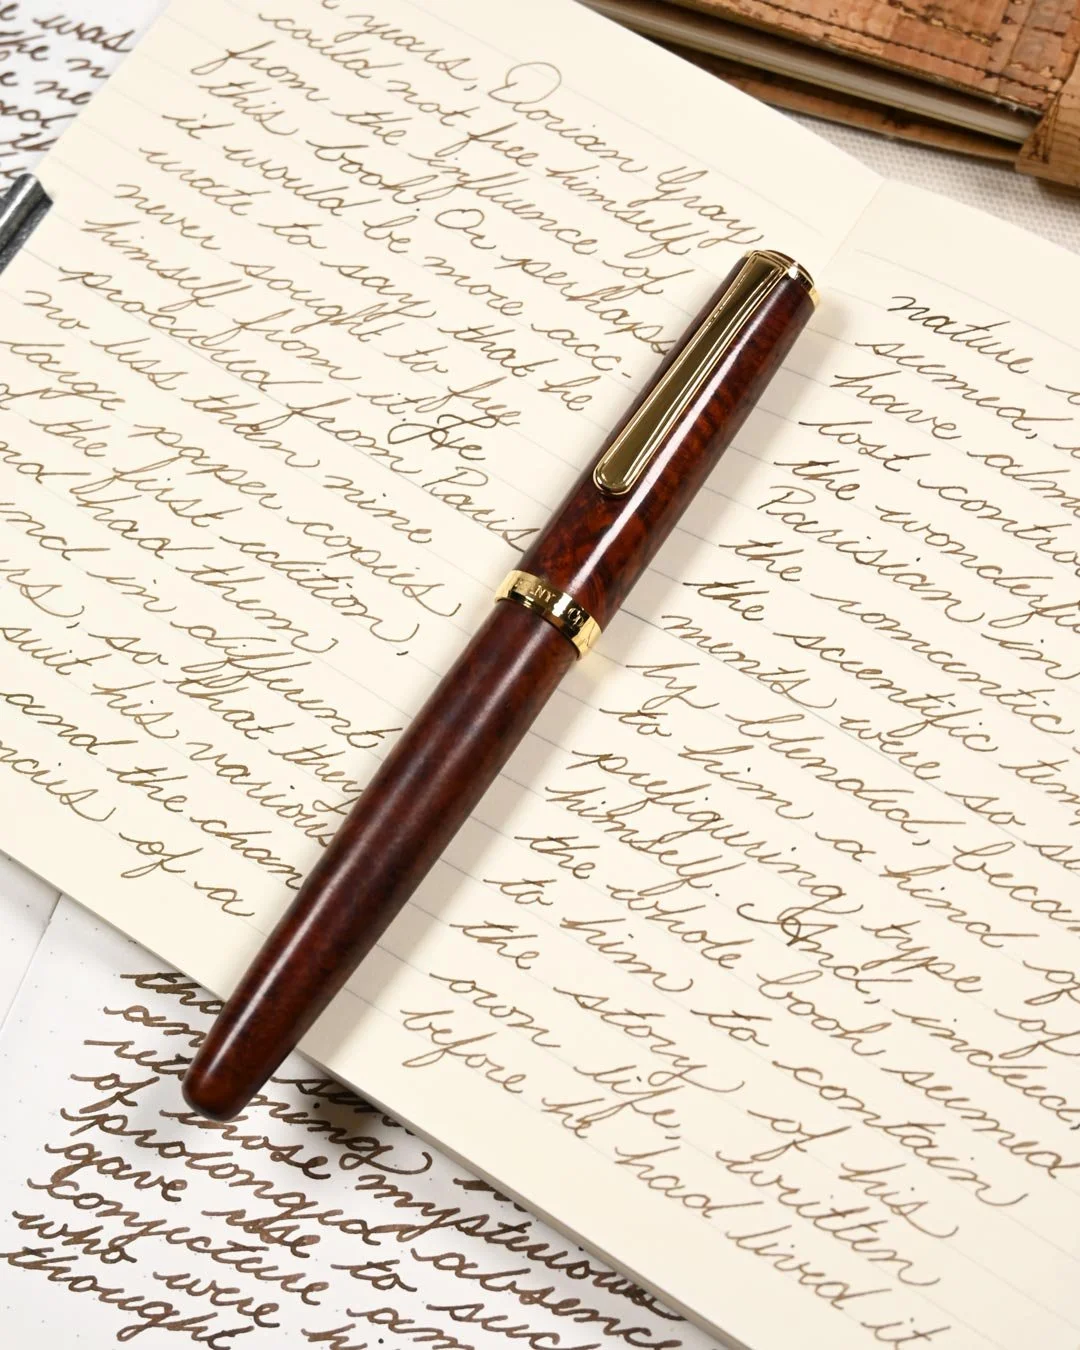 years, Dorian Gray,
could not free himself
from the influence of
this book. Or perhaps
it would be more acc-
urate to say that he
never sought to free
himself from it. He
procured from Paris
no less than nine
large paper copies
of the first edition,
and had them
und in different
rs, so that they
suit his various
and the chan
ncies of a
nature
seemed,
have
lost contro
the wonderf
Parisian in
the romantic
the scientific tem
ments were so
ly blended, beca
to him a kind of
prefiguring type of
himself. And, indeed,
the whole book seemed
to him to contain
the story of his
own life, written
before he had lived it
of those mysterious
prolonged absence
gave rise to such
conjecture am
who were hi
thought